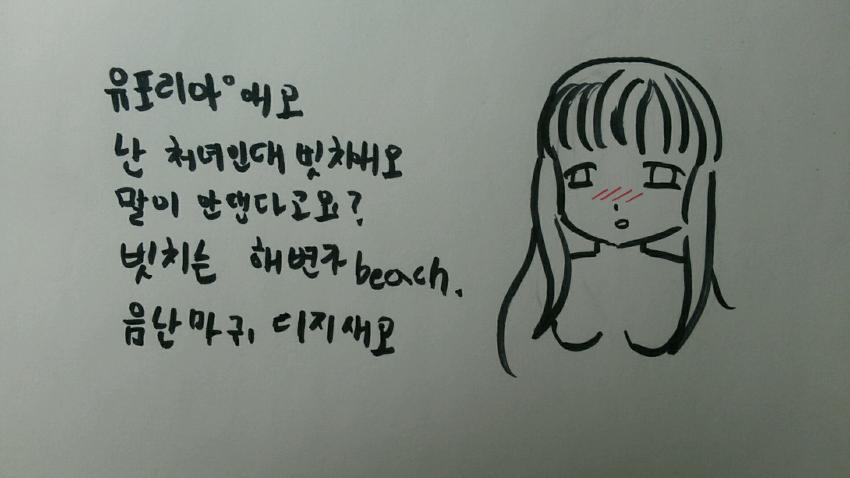 유포리아°에고
난 처녀인대 빗치에오
말이 안댄다고요?
빗치는 해변가 beach.
음난마귀, 디지새요